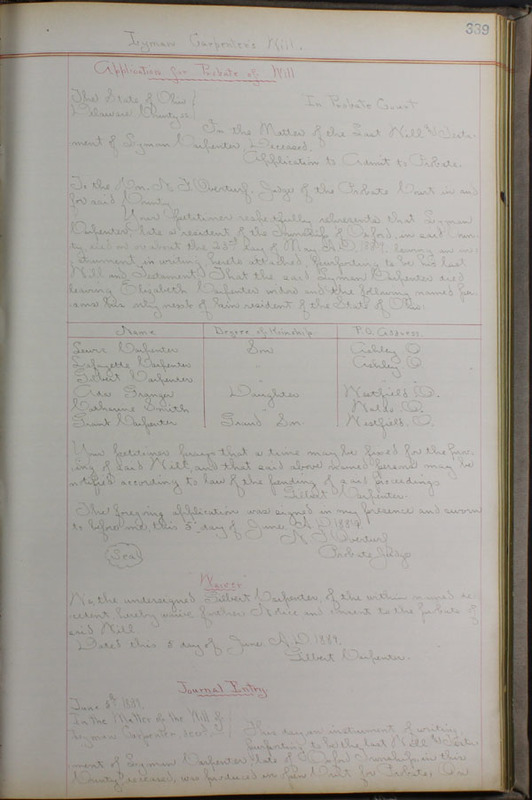 339
Lyman Carpenter's Will.
Application for Probate of Will
The State of Ohio
Delaware County ss
In Probate Court
In the Matter of the Last Will & Testa-
ment of Lyman Carpenter Deceased.
Application to Admit to Probate.
To the Hon. N. F. Overturf, Judge of the Probate Court in and
for said County
Your petitioner respectfully represents that Lyman
Carpenter late a resident of the Township of Oxford, in said Coun-
ty, died on or about the 23rd day of May A.D. 1889, leaving an in-
strument in writing hereto attached, purporting to be his last
Will and Testament; That the said Lyman Carpenter died
leaving Elizabeth Carpenter widow and the following named per-
sons his only next of kin resident of the State of Ohio:
Name Degree of Kinship P.O. Address.
Lewis Carpenter Son Ashley O
Lafayette Carpenter Ashley O.
Gilbert Carpenter
Granger Daughter Westfield O.
Catharine Smith O.
Grant Carpenter Grand Son Westfield O.
Your petitioner prays that a time may be fixed for the prov-
ing of said Will, and that said above named persons may be
notified according to law of the pending of said proceedings
Gilbert Carpenter.
The foregoing application was signed in my presence and sworn
to before me, this 5" day of June A.D. 1889.
N. F. Overturf
Seal Probate Judge
Waiver
We, the undersigned Gilbert Carpenter, of the within named de-
cedent hereby waive further Notice and consent to the probate of
said Will
Dated this 5 day of June A.D. 1889.
Gilbert Carpenter.
Journal Entry
June 5th 1889.
In the Matter of the Will of
Lyman Carpenter decd
This day an instrument of writing
purporting to be the last Will & Testa-
ment of Lyman Carpenter, late of Oxford Township, in this
County, deceased, was produced in open Court for Probate,